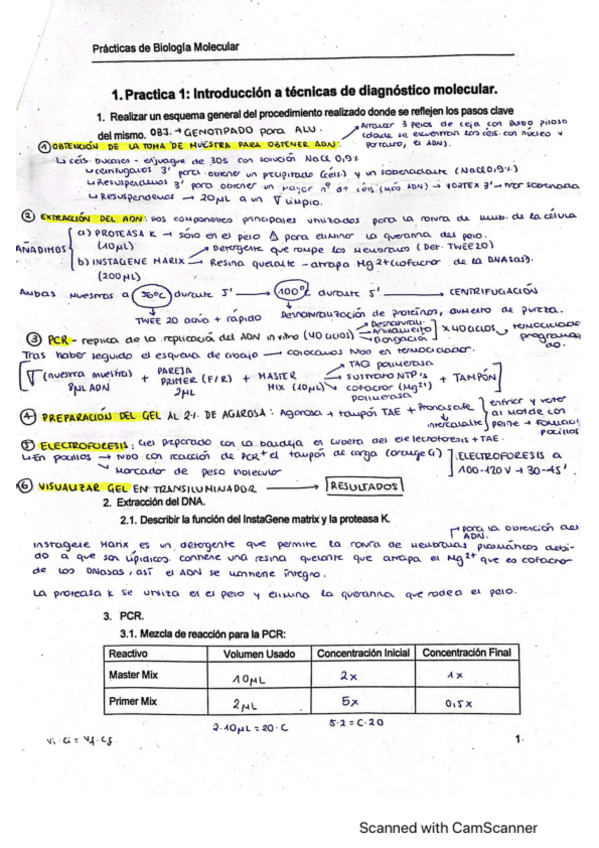 Prácticas de Biología Molecular
1. Practica 1: Introducción a técnicas de diagnóstico molecular.
1. Realizar un esquema general del procedimiento realizado donde se reflejen los pasos clave
del mismo. OBJ. → GENOTIPADO para ALU.
Arrancar 3 pelos de ceja con bulbo piloso
(donde se encuentran las céls. con núcleo y
portanto, el ADN).
① OBTENCIÓN DE LA TOMA DE MUESTRA PARA OBTENER ADN:
↳ céls. bucales - enjuague de 30s con solución NaCl 0,9%
↳ centrifugamos 3' para obtener un precipitado (céls) y un sobrenadante (NaCl 0,9%)
↳ Resuspendemos → 20µL a un limpio.
② EXTRACCIÓN DEL ADN: dos componentes principales utilizados para la rotura de memb. de la célula
AÑADIMOS
a) PROTEASA K → sólo en el pelo para eliminar la queratina del pelo.
(10µL)
Detergente que rompe las membranas (Det. TWEE20)
b) INSTAGENE MARIX → Resina quelante - atrapa Mg2+ (cofactor de la DNAsas).
(200µL)
Ambas muestras a 56ºC durante 5' → 100ºC durante 5' → CENTRIFUGACIÓN
TWEE 20 actúa + rápido
Desnaturalización de proteínas, aumento de pureza.
③ PCR - replica de la replicación del ADN in vitro (40 ciclos)
x 40 ciclos → termociclador
programado.
Tras haber seguido el esquema de abajo → colocamos todo en termociclador.
(nuestra muestra) + PAREJA PRIMER (F/R) + MASTER MIX (10µL)
8µL ADN
2µL
TAQ polimerasa
sustrato NTP's
cofactor (Mg2+)
polimerasa
+ TAMPÓN
④ PREPARACIÓN DEL GEL AL 2% DE AGAROSA: Agarosa + tampón TAE + Pronasafe
intercalante
enfriar y verter
al molde con
peine → Formar
pocillos
⑤ ELECTROFORESIS: Gel preparado con la bandeja en cubeta del electroforesis + TAE.
↳ En pocillos → todo con reacción de PCR + el tampón de carga (orange G)
↳ Marcador de peso molecular
ELECTROFORESIS a
100-120V → 30-45'
⑥ VISUALIZAR GEL EN TRANSILUMINADOR → RESULTADOS
2. Extracción del DNA.
2.1. Describir la función del InstaGene matrix y la proteasa K.
para la obtención del
ADN.
Instagene Marix es un detergente que permite la rotura de membranas plasmáticas debi-
do a que son lipídicas contiene una resina quelante que atrapa el Mg2+ que es cofactor
de las DNasas, así el ADN se mantiene íntegro.
La proteasa K se utiliza en el pelo y elimina la queratina que rodea el pelo.
3. PCR.
3.1. Mezcla de reacción para la PCR:
Reactivo Volumen Usado Concentración Inicial Concentración Final
Master Mix 10µL 2x 1x
Primer Mix 2µL 5x 0,5x
2·10µL = 20·C
5·2 = C·20
Vi·Ci = Vf·Cf
1
Scanned with CamScanner